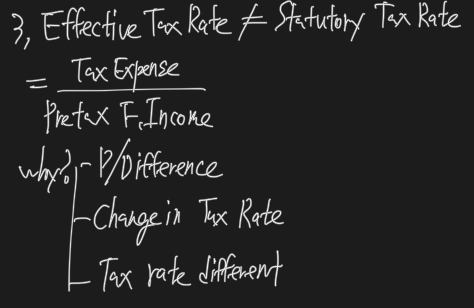 3, Effective Tax Rate ≠ Statutory Tax Rate
= Tax Expense
Pretax F.Income
why? - P/Difference
- Change in Tax Rate
- Tax rate different